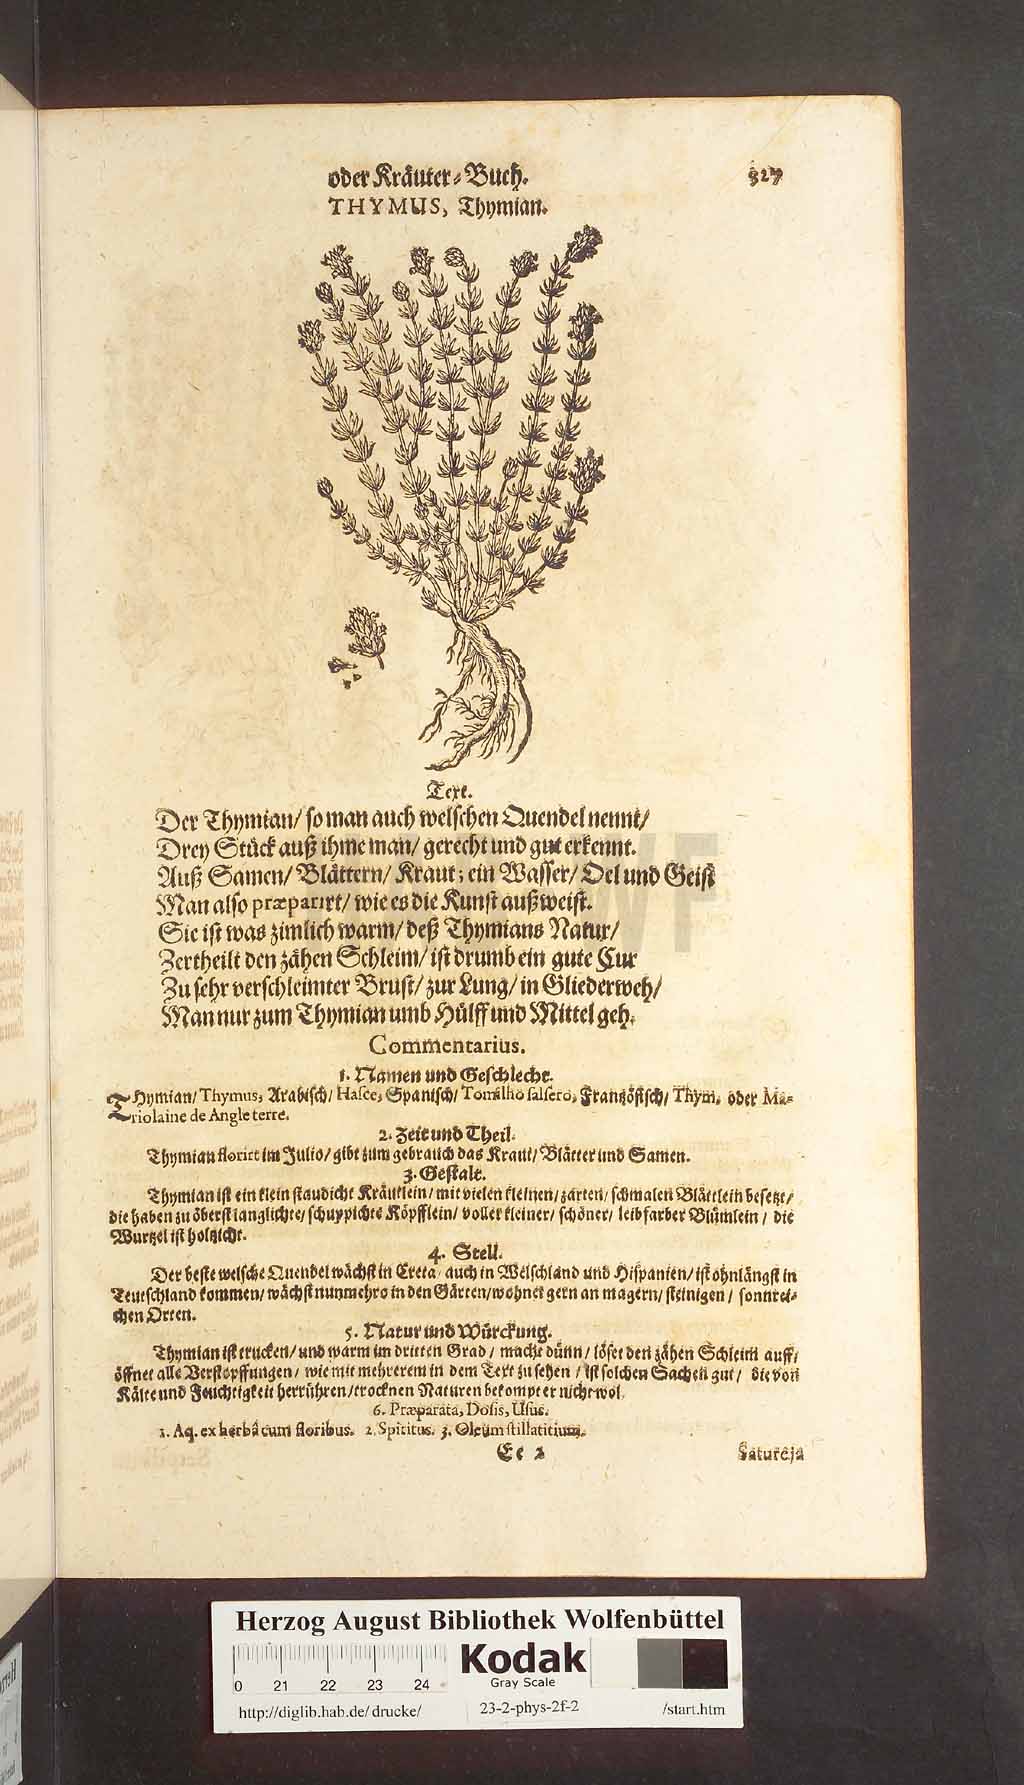 oder Kräuter-Buch. 327
THYMUS, Thymian.
Text.
Der Thymian/ so man auch welschen Quendel nennt/
Drey Stück auß ihme man/ gerecht und gut erkennt.
Auß Samen/ Blättern/ Kraut; ein Wasser/ Oel und Geist
Man also præparirt/ wie es die Kunst außweist.
Sie ist was zimlich warm/ deß Thymians Natur/
Zertheilt den zähen Schleim/ ist drumb ein gute Cur
Zu sehr verschleimter Brust/ zur Lung/ in Gliederweh/
Man nur zum Thymian umb Hülff und Mittel geh.
Commentarius.
1. Namen und Geschlecht.
THymian/ Thymus, Arabisch/ Hasce, Spanisch/ Tomilho salsero, Frantzösisch/ Thym, oder Ma-
riolaine de Angle terre.
2. Zeit und Theil.
Thymian floriret im Julio/ gibt zum gebrauch das Kraut/ Blätter und Samen.
3. Gestalt.
Thymian ist ein klein staudicht Kräutlein/ mit vielen kleinen/ zarten/ schmalen Blättlein besetzt/
die haben zu öberst langlichte/ schuppichte Köpfflein/ voller kleiner/ schöner/ leibfarber Blümlein/ die
Wurtzel ist holtzicht.
4. Stell.
Der beste welsche Quendel wächst in Creta/ auch in Welschland und Hispanien/ ist ohnlängst in
Teutschland kommen/ wächst nunmehro in den Gärten/ wohnet gern an magern/ steinigen/ sonnrei-
chen Orten.
5. Natur und Würckung.
Thymian ist trucken/ und warm im dritten Grad/ macht dünn/ löset den zähen Schleim auff/
öffnet alle Verstopffungen/ wie mit mehrerem in dem Text zu sehen/ ist solchen Sachen gut/ die von
Kälte und Feuchtigkeit herrühren/ trocknen Naturen bekompt er nicht wol.
6. Præparata, Dosis, Usus.
1. Aq. ex herbâ cum floribus. 2. Spiritus. 3. Oleum stillatitium.
Ee 2 Satureja
Herzog August Bibliothek Wolfenbüttel
0 21 22 23 24
Kodak
Gray Scale
http://diglib.hab.de/drucke/ 23-2-phys-2f-2 /start.htm